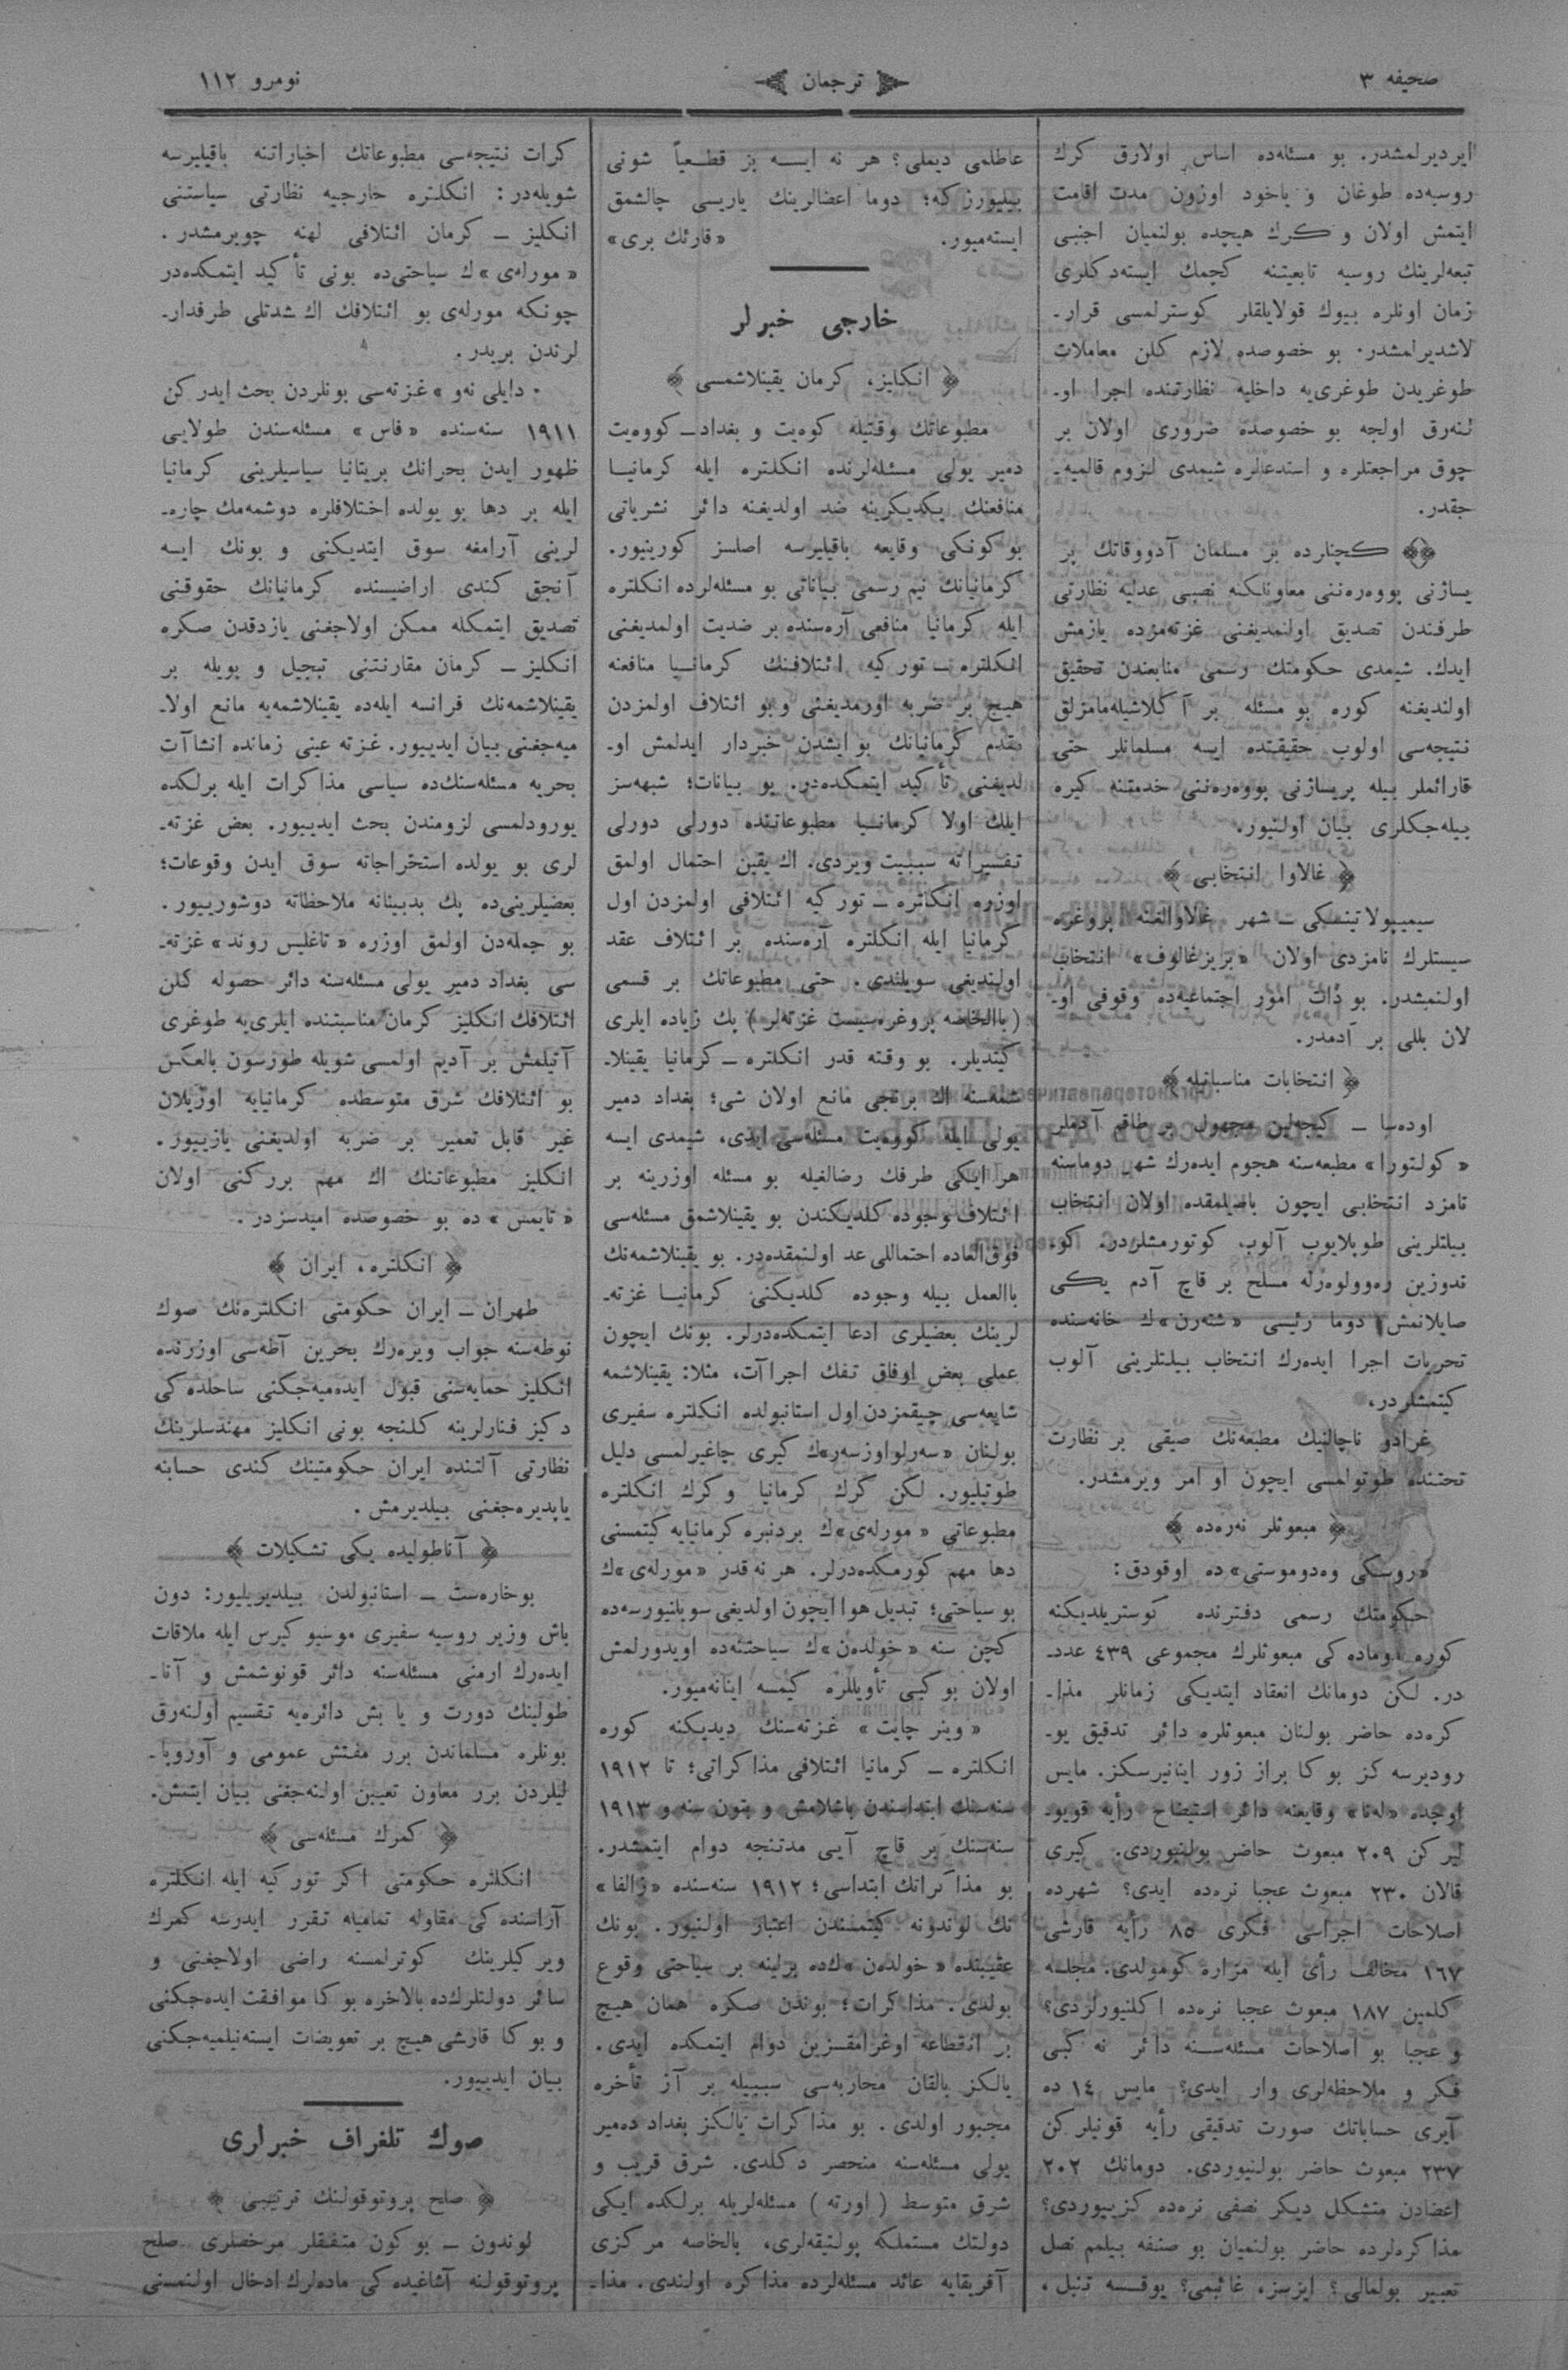 صحيفه ٣
ترجمان
نومرو ١١٢
ايرديرلمشدر. بو مسئله‌ده اساس اولارق كرك
روسيه‌ده طوغان و ياخود اوزون مدت اقامت
ايتمش اولان و كرك هيچده بولنميان اجنبى
تبعه‌لرينك روسيه تابعيتنه كچمك ايسته‌دكلرى
زمان اونلره بيوك قولايلقلر كوسترلمسى قرار-
لاشديرلمشدر. بو خصوصده لازم كلن معاملات
طوغريدن طوغرى‌يه داخليه نظارتنده اجرا او-
لنه‌رق اولجه بو خصوصده ضرورى اولان بر
چوق مراجعتلره و استدعالره شيمدى لزوم قالميه-
جقدر.
﴿﴾ كچنارده بر مسلمان آدووقاتك پر
يساژنى پووه‌ره‌ننى معاونلكنه نصبى عدليه نظارتى
طرفندن تصديق اولنمديغنى غزته‌مزده يازمش
ايدك. شيمدى حكومتك رسمى منابعندن تحقيق
اولنديغنه كوره بو مسئله بر آكلاشيله‌مامزلق
نتيجه‌سى اولوب حقيقتده ايسه مسلمانلر حتى
قارائملر بيله پريساژنى پووه‌ره‌ننى خدمتنه كيره
بيله‌جكلرى بيان اولنيور.
﴿ غالاوا انتخابى ﴾
سيمبپولاتينسكى ــ شهر غالاوالغنه پروغره
سيستلرك نامزدى اولان «بريزغالوف» انتخاب
اولنمشدر. بو ذات امور اجتماعيه‌ده وقوفى او-
لان بللى بر آدمدر.
﴿ انتخابات مناسباتيله ﴾
اوده‌سا ــ كيجه‌لين مجهول بر طاقم آدملر
«كولتورا» مطبعه‌سنه هجوم ايده‌رك شهر دوماسنه
نامزد انتخابى ايچون باصيلمقده اولان انتخاب
بيلتلرينى طوپلايوب آلوب كوتورمشلردر. كو-
ندوزين ره‌وولوه‌رله مسلح بر قاچ آدم يكى
صايلانمش دوما رئيسى «شته‌رن»ك خانه‌سنده
تحريات اجرا ايده‌رك انتخاب بيلتلرينى آلوب
كيتمشلردر.
غرادو ناچالنيك مطبعه‌نك صيقى بر نظارت
تحتنده طوتولمسى ايچون او امر ويرمشدر.
﴿ مبعوثلر نه‌ره‌ده ﴾
«روسكى وه‌دوموستى»ده اوقودق:
حكومتك رسمى دفترنده كوستريلديكنه
كوره دوماده كى مبعوثلرك مجموعى ٤٣٩ عدد-
در. لكن دومانك انعقاد ايتديكى زمانلر مذا-
كره‌ده حاضر بولنان مبعوثلره دائر تدقيق يو-
روديرسه كز بو كا براز زور اينانيرسكز. مايس
اوچده «له‌نا» وقايعنه دائر استيضاح رأيه قويو-
ليركن ٢٠٩ مبعوث حاضر بولنيوردى. كيرى
قالان ٢٣٠ مبعوث عجبا نره‌ده ايدى؟ شهرده
اصلاحات اجراسى فكرى ٨٥ رأيه قارشى
١٦٧ مخالف رأى ايله مزاره كومولدى. مجلسه
كلمين ١٨٧ مبعوث عجبا نره‌ده اكلنيورلردى؟
و عجبا بو اصلاحات مسئله‌سنه دائر نه كبى
فكر و ملاحظه‌لرى وار ايدى؟ مايس ١٤ ده
آيرى حساباتك صورت تدقيقى رأيه قونيلركن
٢٣٧ مبعوث حاضر بولنيوردى. دومانك ٢٠٢
اعضادن متشكل ديكر نصفى نره‌ده كزييوردى؟
مذاكره‌لرده حاضر بولنميان بو صنفه بيلمم نصل
تعبير بولمالى؟ ايزسز، غائبمى؟ يوقسه تنبل،
عاطلمى ديملى؟ هر نه ايسه بز قطعياً شونى
بيليورزكه؛ دوما اعضالرينك ياريسى چالشمق
ايسته‌ميور. «قارئك برى»
خارجى خبرلر
﴿ انكليز، كرمان يقينلاشمسى ﴾
مطبوعاتك وقتيله كوه‌يت و بغداد ــ كووه‌يت
دمير يولى مسئله‌لرنده انكلتره ايله كرمانيا
منافعنك يكديكرينه ضد اولديغنه دائر نشرياتى
بو كونكى وقايعه باقيليرسه اصلسز كورينيور.
كرمانيانك نيم رسمى بياناتى بو مسئله‌لرده انكلتره
ايله كرمانيا منافعى آره‌سنده بر ضديت اولمديغنى
انكلتره ــ توركيه ائتلافنك كرمانيا منافعنه
هيچ بر ضربه اورمديغنى و بو ائتلاف اولمزدن
مقدم كرمانيانك بو ايشدن خبردار ايدلمش او-
لديغنى تأكيد ايتمكده‌در. بو بيانات؛ شبهه‌سز
ايلك اولا كرمانيا مطبوعاتنده دورلى دورلى
تفسيراته سببيت ويردى. اك يقين احتمال اولمق
اوزره انكلتره ــ توركيه ائتلافى اولمزدن اول
كرمانيا ايله انكلتره آره‌سنده بر ائتلاف عقد
اولنديغى سويلندى. حتى مطبوعاتك بر قسمى
(باالخاصه پروغره‌سيست غزته‌لر) پك زياده ايلرى
كيتديلر. بو وقته قدر انكلتره ــ كرمانيا يقينلا-
شمه‌سنه اك برنجى مانع اولان شى؛ بغداد دمير
يولى ايله كووه‌يت مسئله‌سى ايدى، شيمدى ايسه
هر ايكى طرفك رضالغيله بو مسئله اوزرينه بر
ائتلاف وجوده كلديكندن بو يقينلاشمق مسئله‌سى
فوق‌العاده احتماللى عد اولنمقده‌در. بو يقينلاشمه‌نك
باالعمل بيله وجوده كلديكنى كرمانيا غزته-
لرينك بعضيلرى ادعا ايتمكده‌درلر. بونك ايچون
عملى بعض اوفاق تفك اجراآت، مثلا: يقينلاشمه
شايعه‌سى چيقمزدن اول استانبولده انكلتره سفيرى
بولنان «سه‌رلواوزسه‌ر»ك كيرى چاغيرلمسى دليل
طوتيليور. لكن كرك كرمانيا و كرك انكلتره
مطبوعاتى «مورله‌ى»ك بردنبره كرمانيايه كيتمسنى
دها مهم كورمكده‌درلر. هر نه قدر «مورله‌ى»ك
بو سياحتى؛ تبديل هوا ايچون اولديغى سويلنيورسه‌ده
كچن سنه «خولده‌ن»ك سياحتنه‌ده اويدورلمش
اولان بو كبى تأويللره كيمسه اينانه‌ميور.
«وينر چايت» غزته‌سنك ديديكنه كوره
انكلتره ــ كرمانيا ائتلافى مذاكراتى؛ تا ١٩١٢
سنه‌سنك ابتداسندن باشلامش و بتون سنه و ١٩١٣
سنه‌سنك بر قاچ آيى مدتنجه دوام ايتمشدر.
بو مذاكراتك ابتداسى؛ ١٩١٢ سنه‌سنده «زالفا»
نك لوندونه كيتمسندن اعتبار اولنيور. بونك
عقيبنده «خولده‌ن»ك‌ده برلينه بر سياحتى وقوع
بولدى. مذاكرات؛ بوندن صكره همان هيچ
بر انقطاعه اوغرامقزين دوام ايتمكده ايدى.
يالكز بالقان محاربه‌سى سببيله بر آز تأخره
مجبور اولدى. بو مذاكرات يالكز بغداد ده‌مير
يولى مسئله‌سنه منحصر دكلدى. شرق قريب و
شرق متوسط (اورته) مسئله‌لريله برلكده ايكى
دولتك مستملكه پولتيقه‌لرى، بالخاصه مركزى
آفريقايه عائد مسئله‌لرده مذاكره اولندى. مذا-
كرات نتيجه‌سى مطبوعاتك اخباراتنه باقيليرسه
شويله‌در: انكلتره خارجيه نظارتى سياستنى
انكليز ــ كرمان ائتلافى لهنه چويرمشدر.
«مورله‌ى»ك سياحتى‌ده بونى تأكيد ايتمكده‌در
چونكه مورله‌ى بو ائتلافك اك شدتلى طرفدار-
لرندن بريدر.
«دايلى نه‌و» غزته‌سى بونلردن بحث ايدركن
١٩١١ سنه‌سنده «فاس» مسئله‌سندن طولايى
ظهور ايدن بحرانك بريتانيا سياسيلرينى كرمانيا
ايله بر دها بو يولده اختلافلره دوشمه‌مك چاره-
لرينى آرامغه سوق ايتديكنى و بونك ايسه
آنجق كندى اراضيسنده كرمانيانك حقوقنى
تصديق ايتمكله ممكن اولاجغنى يازدقدن صكره
انكليز ــ كرمان مقارنتنى تبجيل و بويله بر
يقينلاشمه‌نك فرانسه ايله‌ده يقينلاشمه‌يه مانع اولا-
ميه‌جغنى بيان ايدييور. غزته عينى زمانده انشاآت
بحريه مسئله‌سنك‌ده سياسى مذاكرات ايله برلكده
يورودلمسى لزومندن بحث ايدييور. بعض غزته-
لرى بو يولده استخراجاته سوق ايدن وقوعات؛
بعضيلرينى‌ده پك بدبينانه ملاحظاته دوشورييور.
بو جمله‌دن اولمق اوزره «تاغليس روند» غزته-
سى بغداد دمير يولى مسئله‌سنه دائر حصوله كلن
ائتلافك انكليز كرمان مناسبتنده ايلرى‌يه طوغرى
آتيلمش بر آديم اولمسى شويله طورسون بالعكس
بو ائتلافك شرق متوسطده كرمانيايه اوزيلان
غير قابل تعمير بر ضربه اولديغنى يازييور.
انكليز مطبوعاتنك اك مهم برركنى اولان
«تايمس» ده بو خصوصده اميدسزدر.
﴿ انكلتره، ايران ﴾
طهران ــ ايران حكومتى انكلتره‌نك صوك
نوطه‌سنه جواب ويره‌رك بحرين آطه‌سى اوزرنده
انكليز حمايه‌سنى قبول ايده‌ميه‌جكنى ساحلده كى
دكيز فنارلرينه كلنجه بونى انكليز مهندسلرينك
نظارتى آلتنده ايران حكومتينك كندى حسابنه
ياپديره‌جغنى بيلديرمش.
﴿ آناطوليده يكى تشكيلات ﴾
بوخاره‌ست ــ استانبولدن بيلديريليور: دون
باش وزير روسيه سفيرى موسيو كيرس ايله ملاقات
ايده‌رك ارمنى مسئله‌سنه دائر قونوشمش و آنا-
طولينك دورت و يا بش دائره‌يه تقسيم اولنه‌رق
بونلره مسلماندن برر مفتش عمومى و آوروپا-
ليلردن برر معاون تعيين اولنه‌جغنى بيان ايتمش.
﴿ كمرك مسئله‌سى ﴾
انكلتره حكومتى اكر توركيه ايله انكلتره
آراسنده كى مقاوله تماميله تقرر ايدرسه كمرك
ويركيلرينك كوترلمسنه راضى اولاجغنى و
سائر دولتلرك‌ده بالاخره بو كا موافقت ايده‌جكنى
و بو كا قارشى هيچ بر تعويضات ايسته‌نيلميه‌جكنى
بيان ايدييور.
صوك تلغراف خبرارى
﴿ صلح پروتوقولنك ترتيبى ﴾
لوندون ــ بو كون متفقلر مرخصلرى صلح
پروتوقولنه آشاغيده كى ماده‌لرك ادخال اولنمسنى